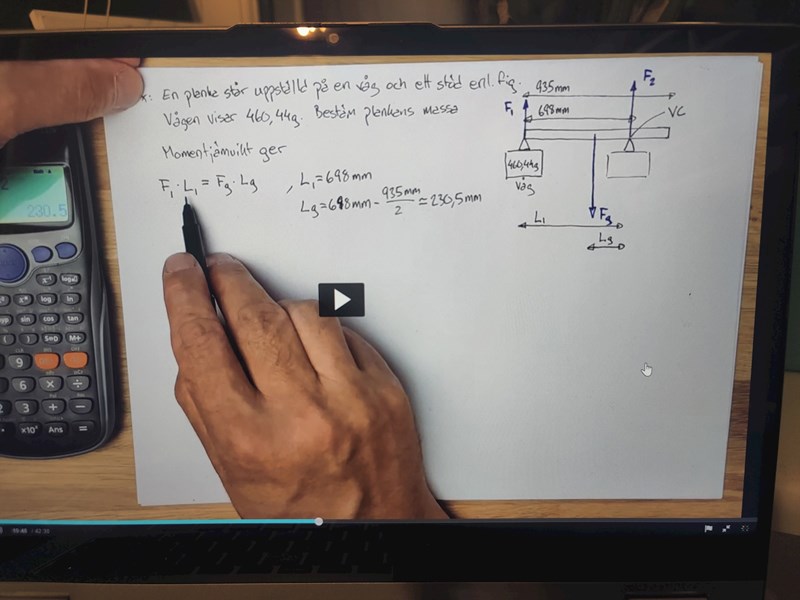 *: En planka står uppställd på en våg och ett stöd enl. fig.
Vågen visar 460,44g. Bestäm plankans massa
Momentjämvikt ger
F₁ · L₁ = Fg · Lg , L₁ = 698mm
Lg = 698mm - 935mm/2 ≈ 230,5mm
935mm
F₂
F₁
698mm
VC
460,44g
Våg
Fg
L₁
Lg
230.5
x⁻¹
log
ln
sin
cos
tan
S⇔D
M+
9
6
×
÷
2
3
+
−
×10ˣ
Ans
=